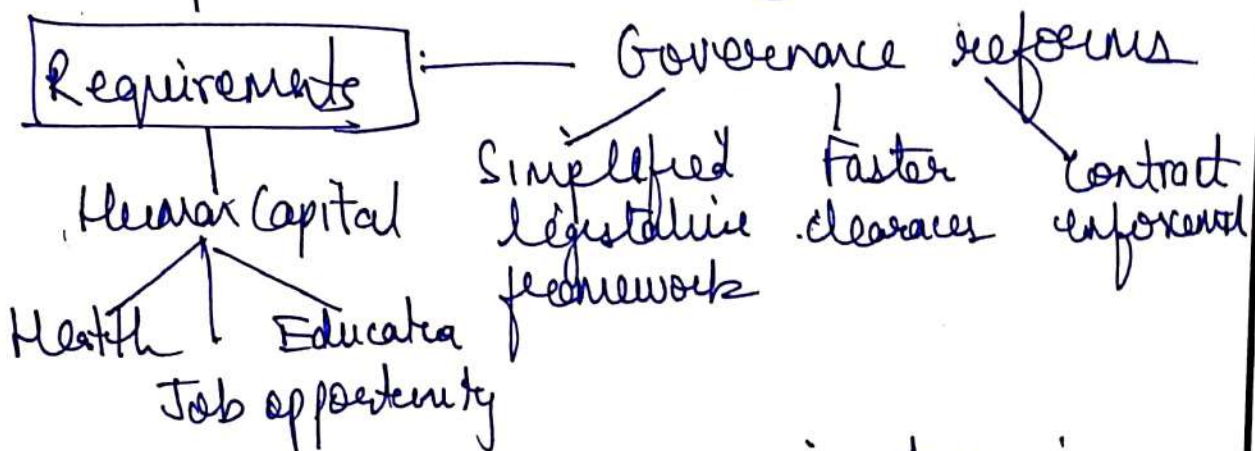 Requirements
Governance reforms
Human Capital
Simplified
legistative
framework
Faster
clearaces
Contract
enforcemt
Health
Education
Job opportunity